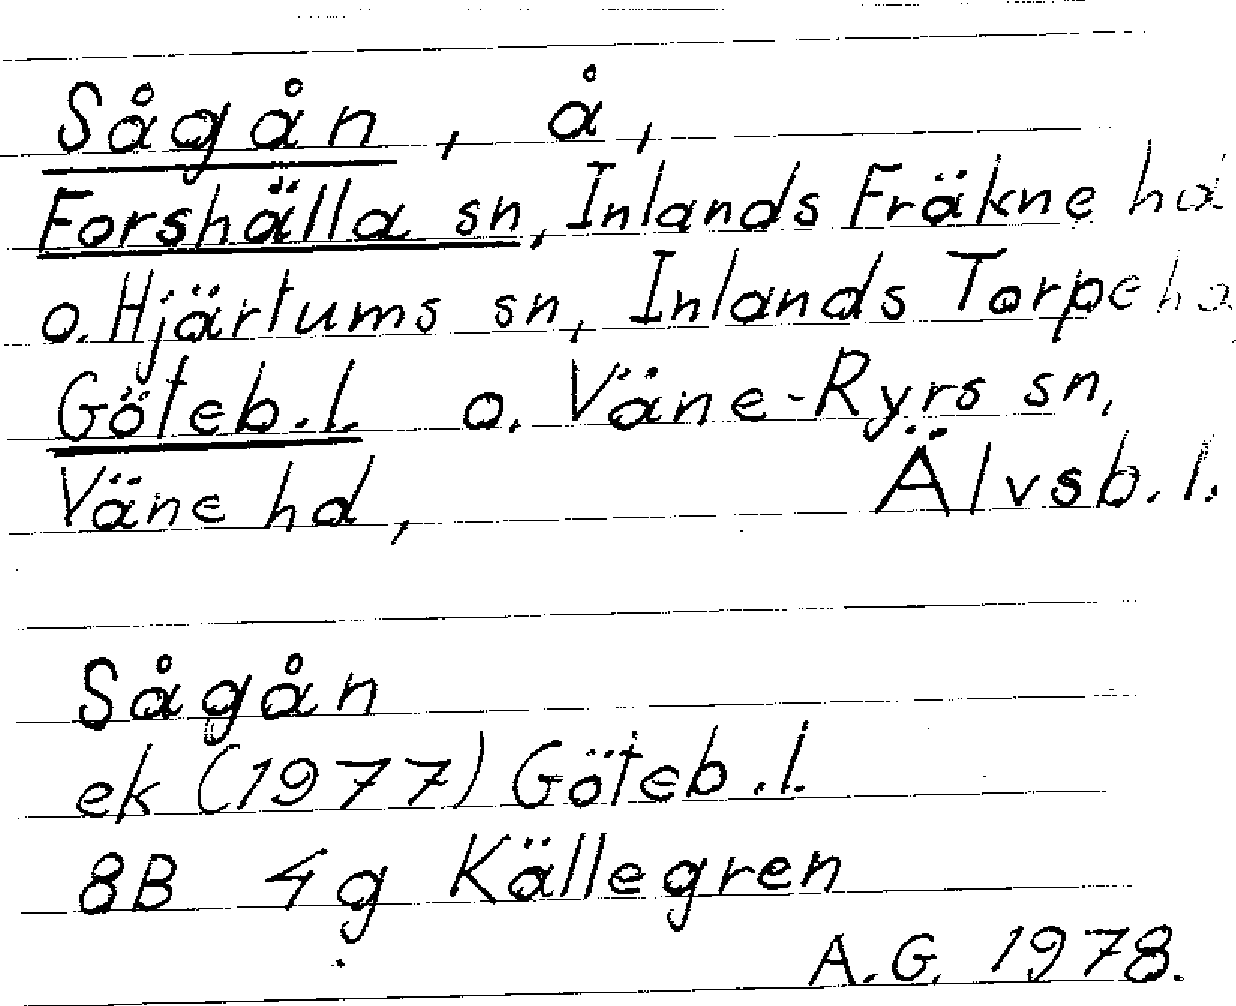 Sågån, å,
Forshälla sn, Inlands Fräkne hd
o. Hjärtums sn, Inlands Torpe hd
Göteb.l. o. Väne-Ryrs sn,
Väne hd, Älvsb.l.
Sågån
ek (1977) Göteb.l.
8B 4g Källegren
A.G. 1978.